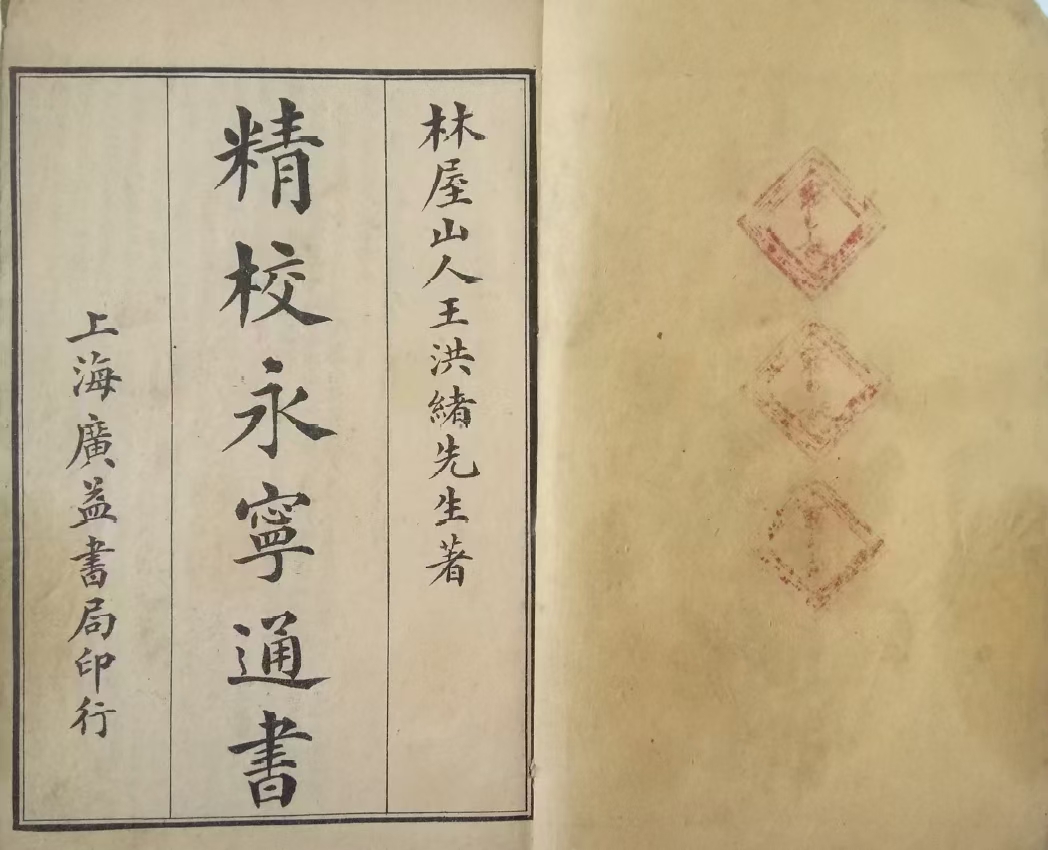 林屋山人王洪緒先生著
精校永寧通書
上海廣益書局印行